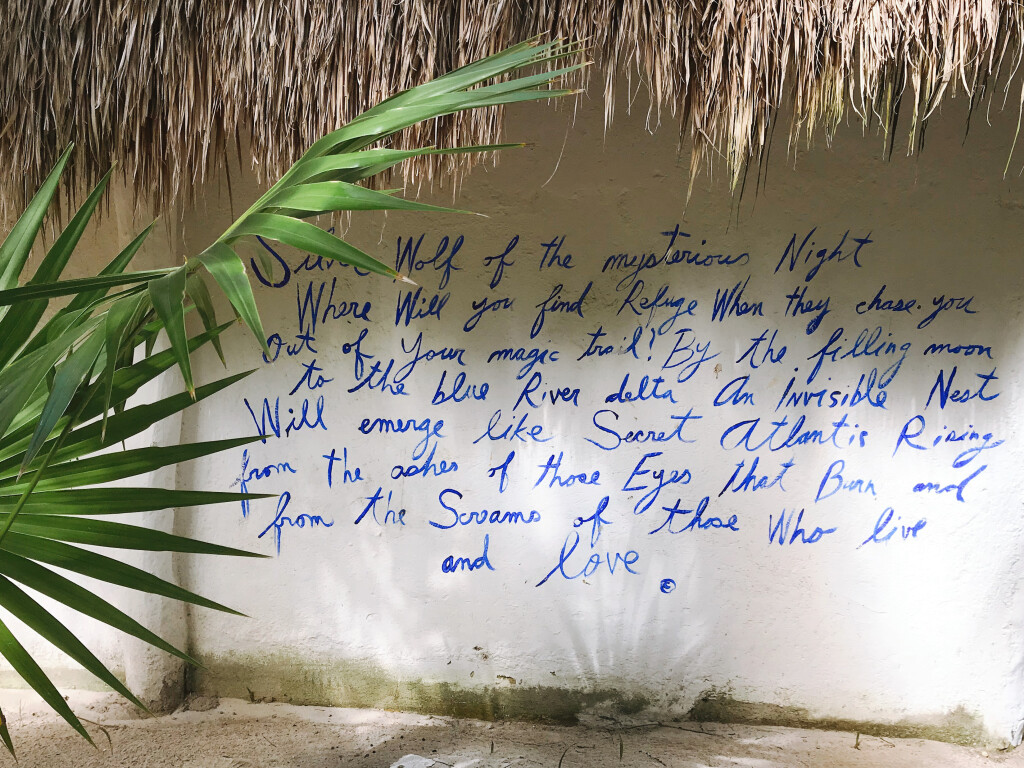 Wolf of the mysterious Night
Where Will you find Refuge When they chase you
Out of Your magic trail! By the filling moon
to the blue River delta An Invisible Nest
Will emerge like Secret Atlantis Rising
from the ashes of those Eyes that Burn and
from the Screams of those Who live
and love